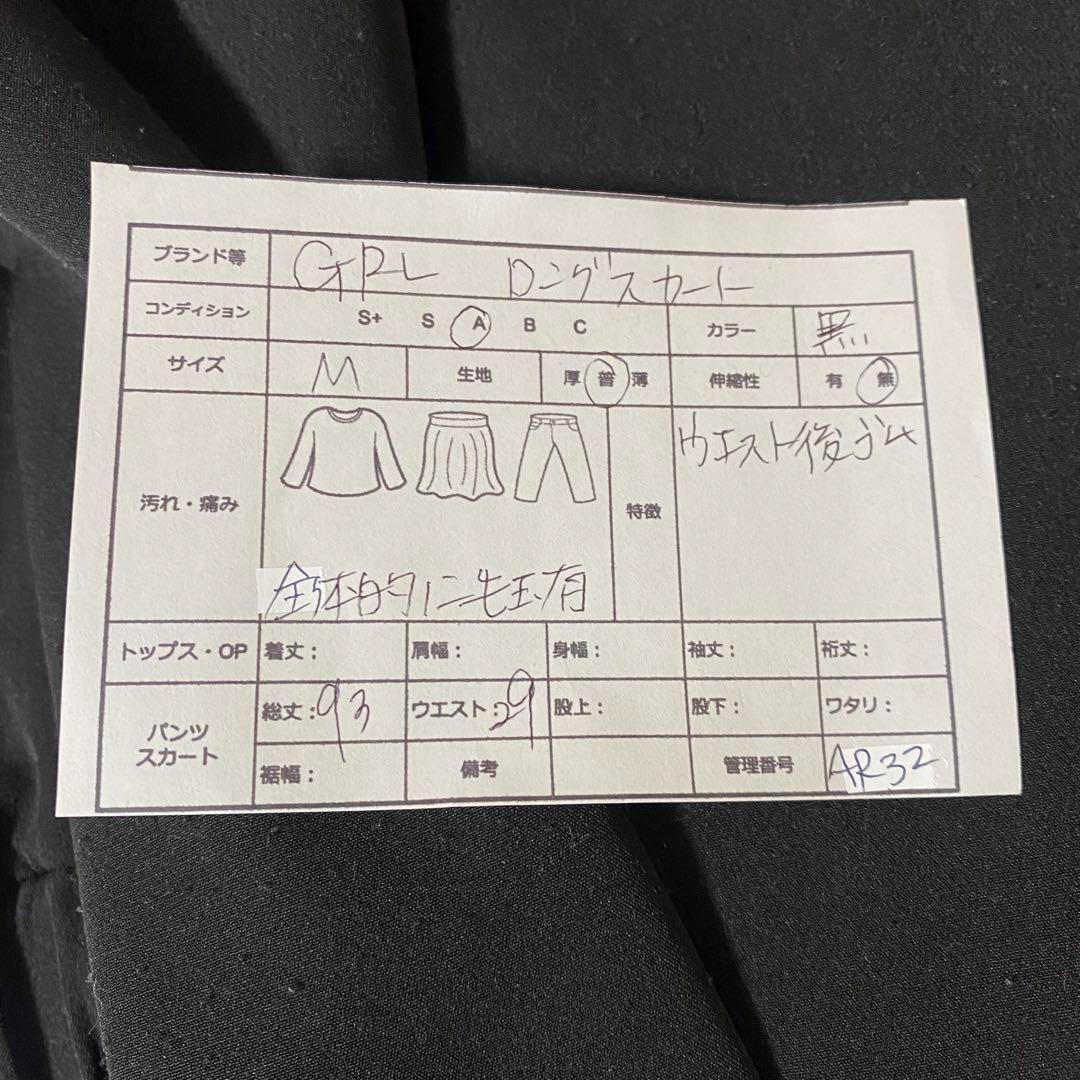 ブランド等 GRL ロングスカート
コンディション S+ S A B C カラー 黒
サイズ M 生地 厚 普 薄 伸縮性 有 無
汚れ・痛み 全体的に毛玉有 特徴 ウエスト後ゴム
トップス・OP 着丈: 肩幅: 身幅: 袖丈: 裄丈:
パンツ スカート 総丈:93 ウエスト:29 股上: 股下: ワタリ:
裾幅: 備考 管理番号 AR32